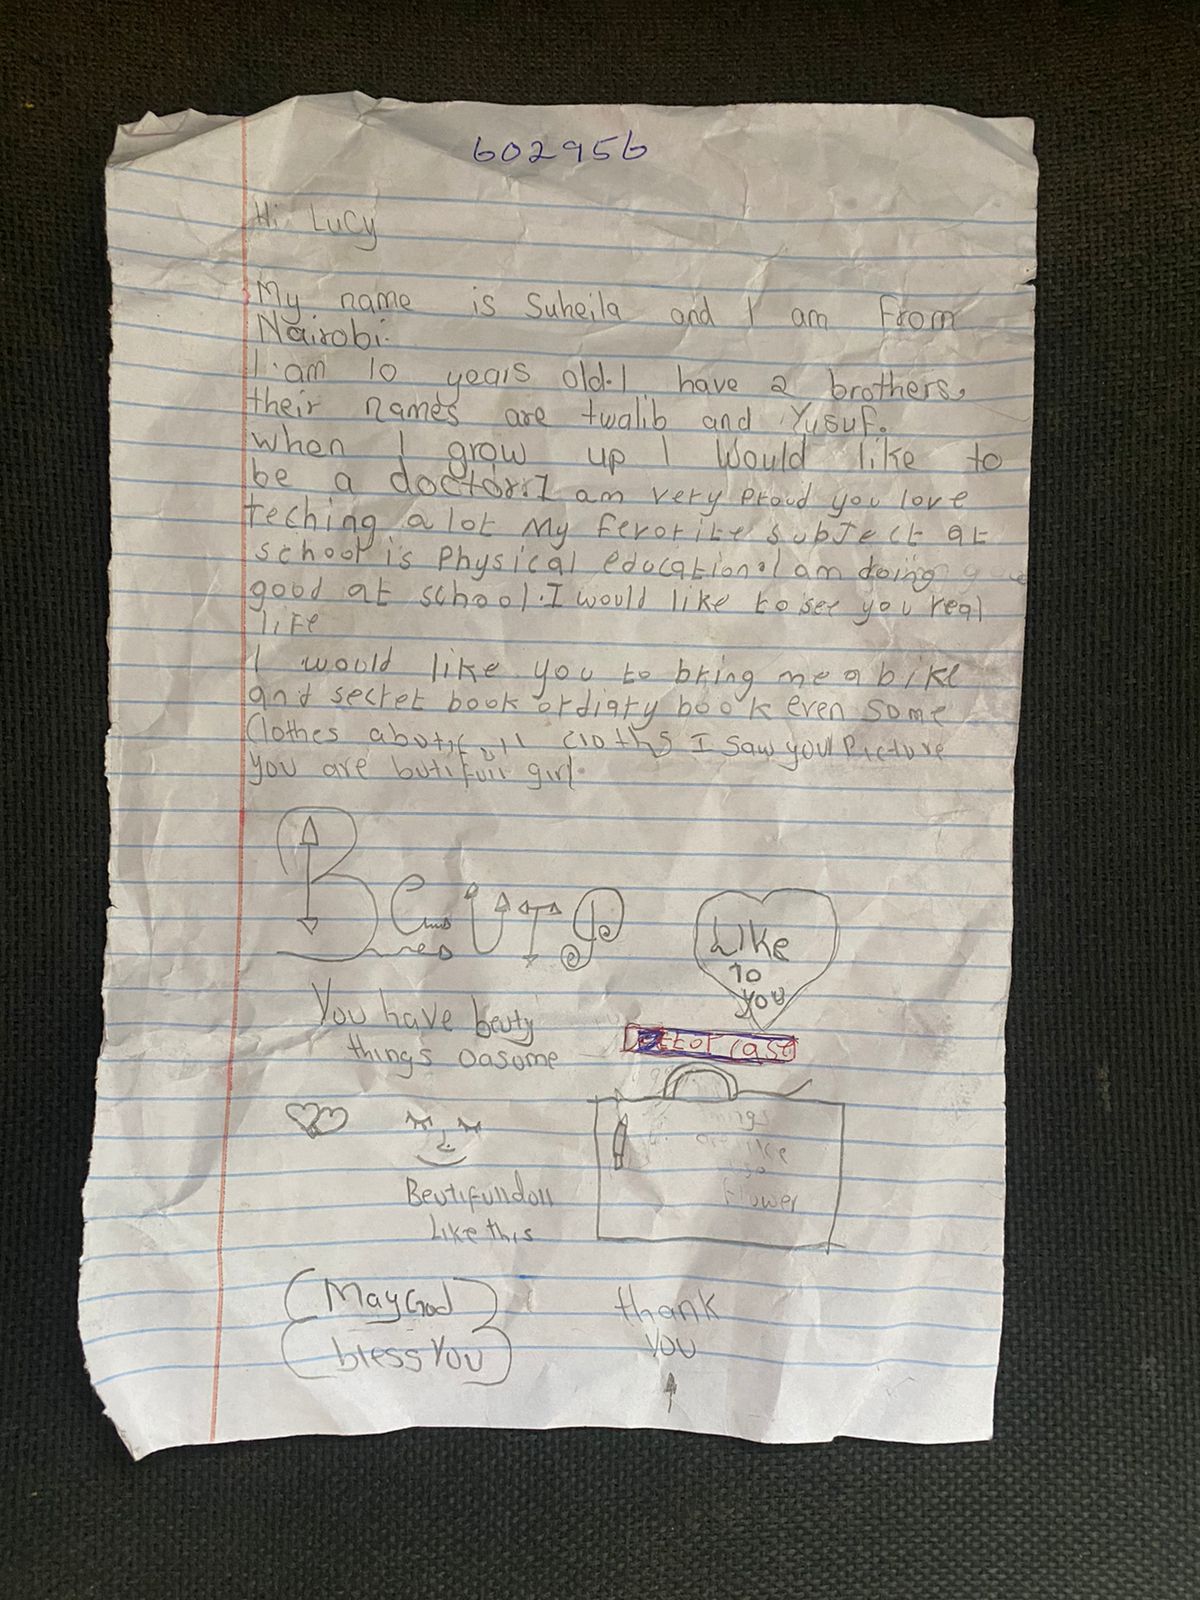 602956
Hi Lucy
My name is Suheila and I am From
Nairobi.
I am 10 years old. I have 2 brothers,
their names are twalib and Yusuf.
when I grow up I Would like to
be a doctor. I am very Proud you love
teching a lot My Fevorite subject at
school is Physical education. I am doing
good at school. I would like to see you real
life
I would like you to bring me a bike
and secret book or diary book even some
Clothes I saw your Picture
you are girl.
Beuty
Like
To
you
You have beuty
things oasome
like
Flower
Beutifulldoll
Like this
May God
bless You
thank
you